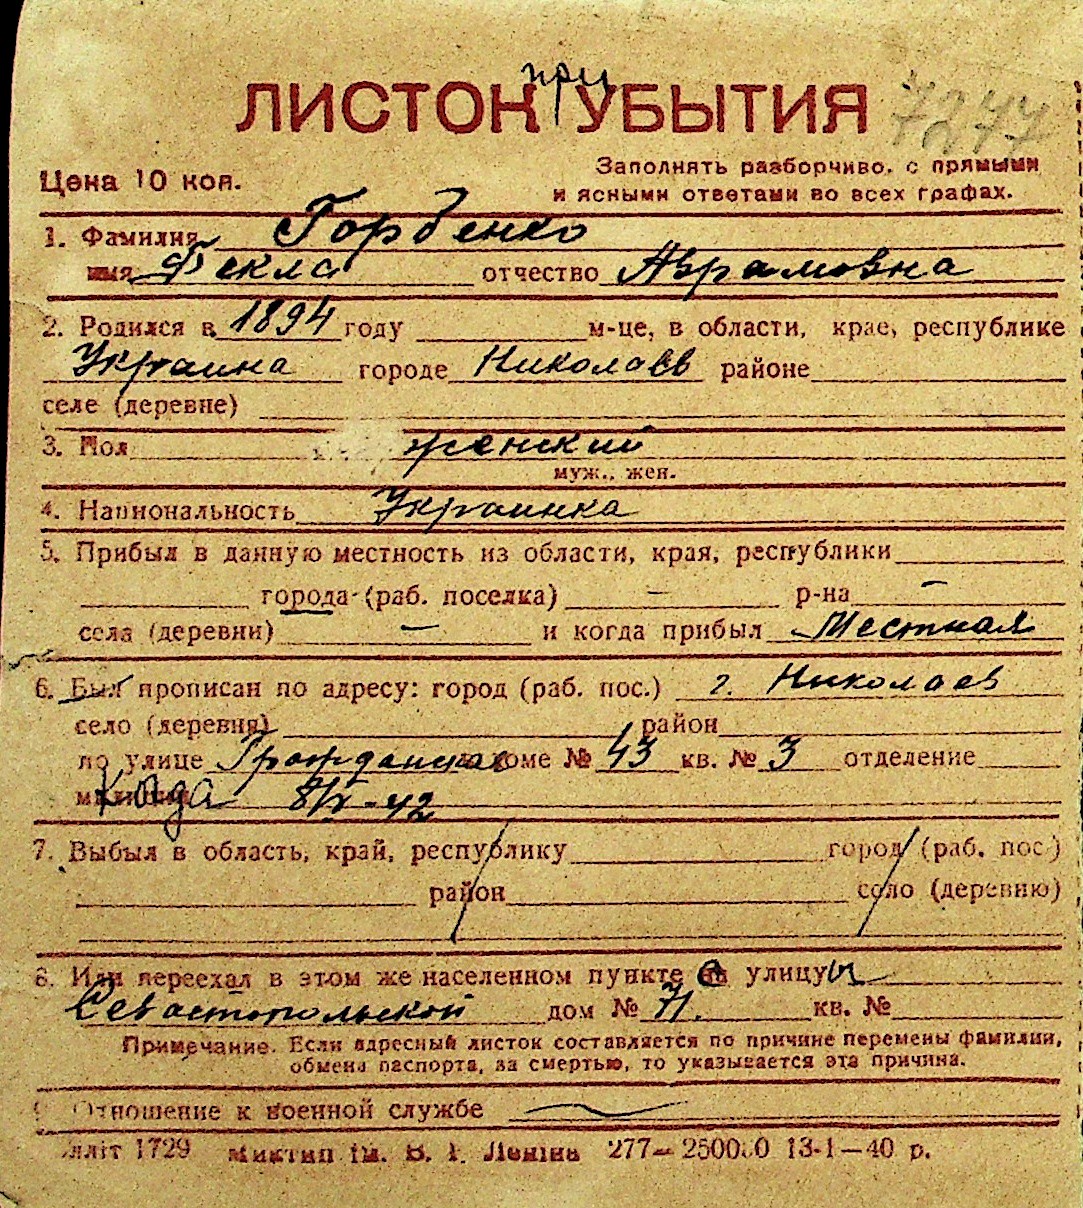 ЛИСТОК при УБЫТИЯ 7277
Цена 10 коп. Заполнять разборчиво, с прямыми
и ясными ответами во всех графах.
1. Фамилия Горбенко
имя Фекла отчество Аврамовна
2. Родился в 1894 году м-це, в области, крае, республике
Украина городе Николаев районе
селе (деревне)
3. Пол женский
муж., жен.
4. Национальность Украинка
5. Прибыл в данную местность из области, края, республики
города (раб. поселка) – р-на –
села (деревни) – и когда прибыл Местная
6. Был прописан по адресу: город (раб. пос.) г. Николаев
село (деревня) район
по улице Гражданская доме № 43 кв. № 3 отделение
милиции Когда 8/IX-42
7. Выбыл в область, край, республику город (раб. пос.)
район село (деревню)
8. Или переехал в этом же населенном пункте с улицы
Севастопольской дом № 71. кв. №
Примечание. Если адресный листок составляется по причине перемены фамилии,
обмена паспорта, за смертью, то указывается эта причина.
9. Отношение к военной службе —
лліт 1729 ім. В. І. Леніна 277—250000 13-1—40 р.